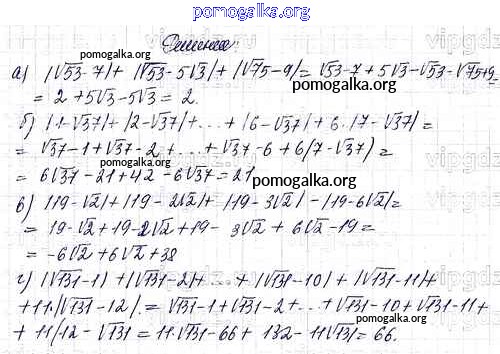 pomogalka.org
Решение
а) |√53-7| + |√53-5√3| + |√75-9| = √53-7+5√3-√53-√75+9=
= 2+5√3-5√3 = 2.
б) |1-√37| + |2-√37| + ... + |6-√37| + 6·|7-√37| =
= √37-1+√37-2+...+√37-6+6(7-√37) =
= 6√37-21+42-6√37=21
в) |19-√2| + |19-2√2| + |19-3√2| - |19-6√2| =
= 19-√2+19-2√2+19-3√2+6√2-19=
= -6√2+6√2+38
г) |√131-1| + |√131-2| + ... + |√131-10| + |√131-11| +
+11·|√131-12| = √131-1+√131-2+...+√131-10+√131-11+
+ 11|12-√131| = 11√131-66+132-11√131=66.
pomogalka.org